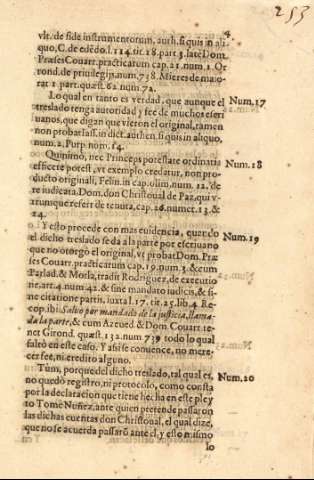 253
4
vlt. de fide instrumentorum, auth. si quis in ali-
quo, C. de edēdo, l. 114. tit. 18. part. 3. latè Dom.
Præses Couarr. practicarum cap. 21. num. 1. Or
rond. de priuilegijs, num. 738. Mieres de maio-
rat. 1. part. quæst. 62. num. 72.
Lo qual en tanto es verdad, que aunque el Num. 17
treslado tenga autoridad y fee de muchos escri
uanos, que digan que vieron el original, tamen
non probat Iass. in dict. authen. si quis in aliquo,
num. 2. Purp. nom. 14.
Quinimo, nec Princeps potestate ordinatia Num. 18
efficere potest, vt exemplo credatur, non pro-
ducto originali, Felin. in cap. olim, num. 12. de
re iudicata. Dom. don Christoual de Paz, qui v-
trumque refert de tenuta, cap. 26. numer. 13. &
24.
Y esto procede con mas euidencia, quando Num. 19
el dicho treslado se dà a la parte por escriuano
que no otorgò el original, vt probat Dom. Præ
ses Couarr. practicarum cap. 19. num. 3. & cum
Parlad. & Morla, tradit Rodriguez, de executio
ne, art. 4. num. 42. & sine mandato iudicis, & si-
ne citatione partis, iuxta l. 17. tit. 25. lib. 4. Re
cop. ibi: Saluo por mandado de la justicia, llama-
da la parte, & cum Azeued. & Dom. Couarr. te-
net Girond. quæst. 132. num. 739. todo lo qual
faltò en este caso. Y assi se conuence, no mere-
cer fee, ni credito alguno.
Tùm, porque del dicho treslado, tal qual es, Num. 20
no quedò registro, ni protocolo, como consta
por la declaracion que tiene hecha en este pley
to Tomè Nuñez, ante quien pretende passaron
las dichas cuentas don Christoual, el qual dize,
que no se acuerda passarō ante el, y esso mismo
lo